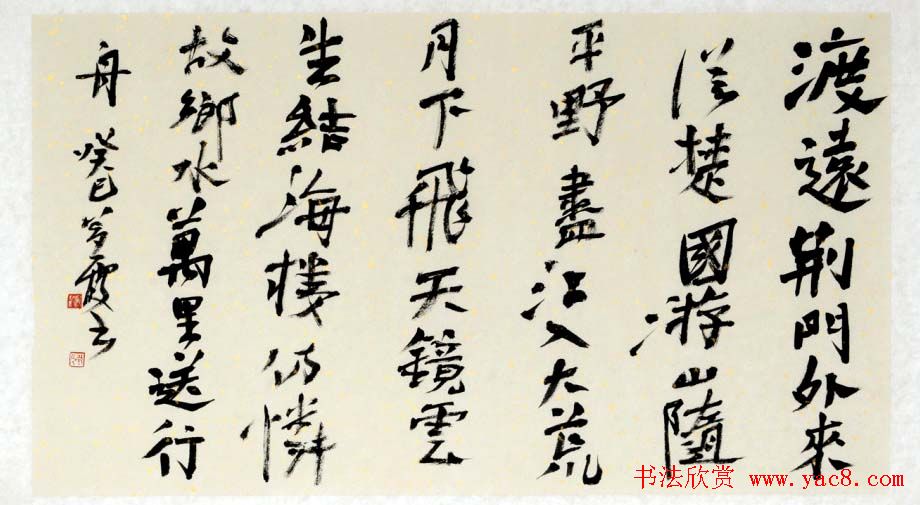 渡遠荆門外來
從楚國游山隨
平野盡江入大荒
月下飛天鏡雲
生結海樓仍憐
故鄉水萬里送行
舟 癸巳
书法欣赏 www.yac8.com